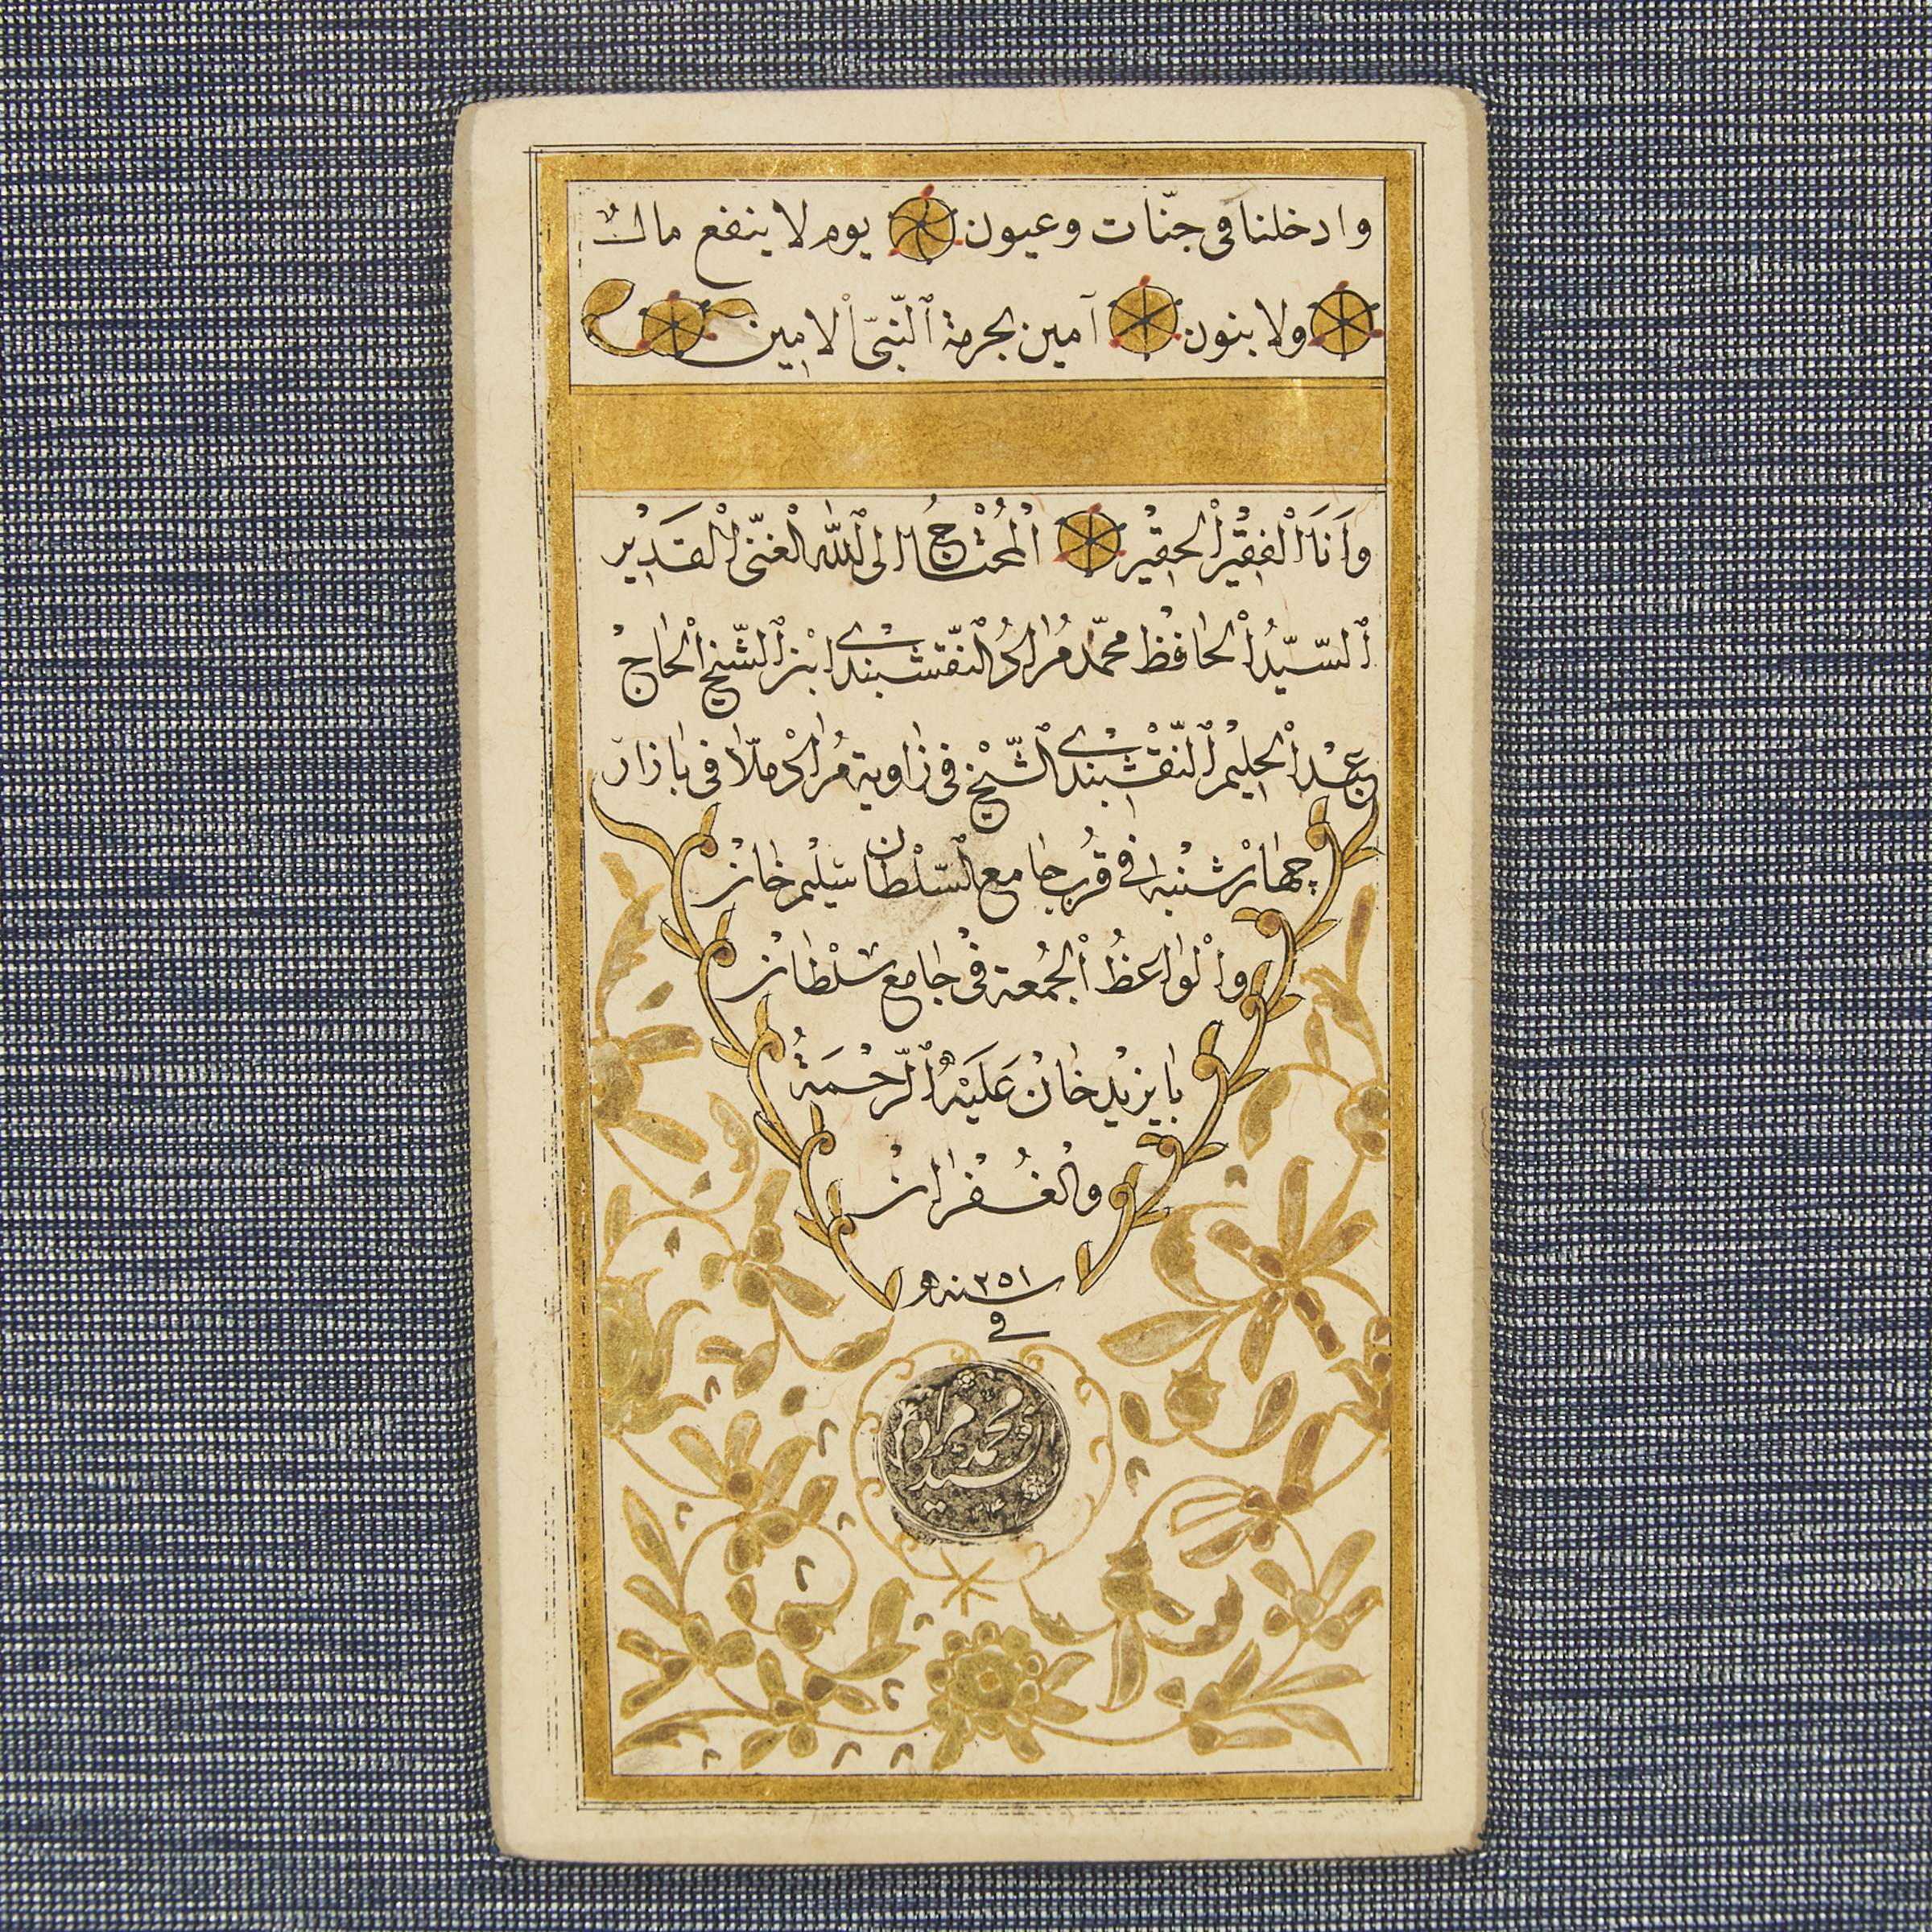 وادخلنا فى جنّات وعيون يوم لا ينفع مالٌ
ولا بنون آمين بحرمة ٱلنّبىّ ٱلامين
وَاَنَا الْفقيْر الْحقيْر الْمُحْتاجُ الى ٱللّٰه الْغنىّ الْقَديْر
ٱلسّيّدُ الْحافظ محمّد مُراد ٱلنّقشبندى ابْن ٱلشّيخ الْحاجْ
عبْد الْحليْم ٱلنّقْشبندى ٱلشّيْخ فى زاوية مُراد مُلّا فى بازار
چهارْشنْبه فى قُرب جامع ٱلسّلْطان سليْم خانْ
والْواعظُ الْجُمعة فى جامع سلْطانْ
بايزيْد خانْ عَلَيْهِ ٱلرّحْمَةُ
والْغُفْرانْ
سنه ١٢٥١
فى
سيد محمد مراد